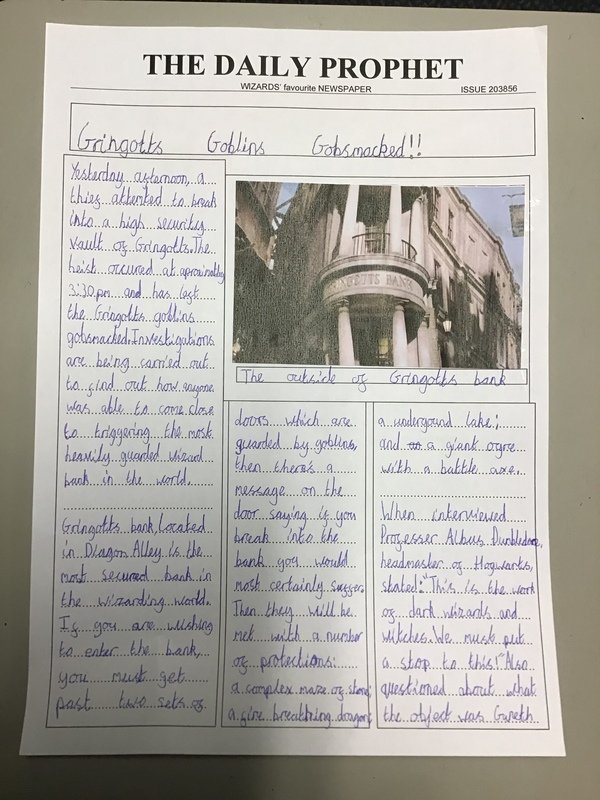 THE DAILY PROPHET
WIZARDS' favourite NEWSPAPER
ISSUE 203856
Gringotts Goblins Gobsmacked!!
Yesterday afternoon, a
thief attemted to break
into a high security
vault of Gringotts. The
heist occured at aproximatley
3:30pm and has left
the Gringotts goblins
gobsmacked. Investigations
are being carried out
to find out how anyone
was able to come close
to triggering the most
heavily guarded wizard
bank in the world.
Gringotts bank, located
in Diagon Alley is the
most secured bank in
the wizarding world.
If you are wishing
to enter the bank,
you must get
past two sets of
GRINGOTTS BANK
The outside of Gringotts bank
doors which are
guarded by goblins,
then there's a
message on the
door saying if you
break into the
bank you would
most certainly suffer.
Then they will be
met with a number
of protections:
a complex maze of stone;
a fire breathing dragon;
a underground lake;
and a giant ogre
with a battle axe.
When interviewed
Professer Albus Dumbledore,
headmaster of Hogwarts,
stated: "This is the work
of dark wizards and
witches. We must put
a stop to this!" Also
questioned about what
the object was Gareth